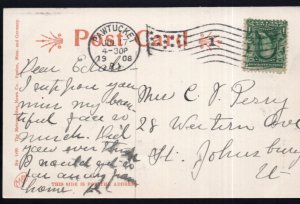 Post Card
PAWTUCKET
4-30P
19 08
Dear
I suppose you
miss my beau
tiful face so
much. Did
you ever think
I would get so
far away from
home.
Mrs C. J. Perry
28 Western Ave
St. Johnsbury
Vt
THIS SIDE IS FOR THE ADDRESS